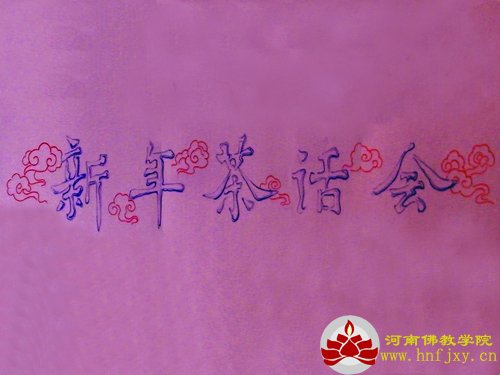 新年茶话会
河南佛教学院
www.hnfjxy.cn